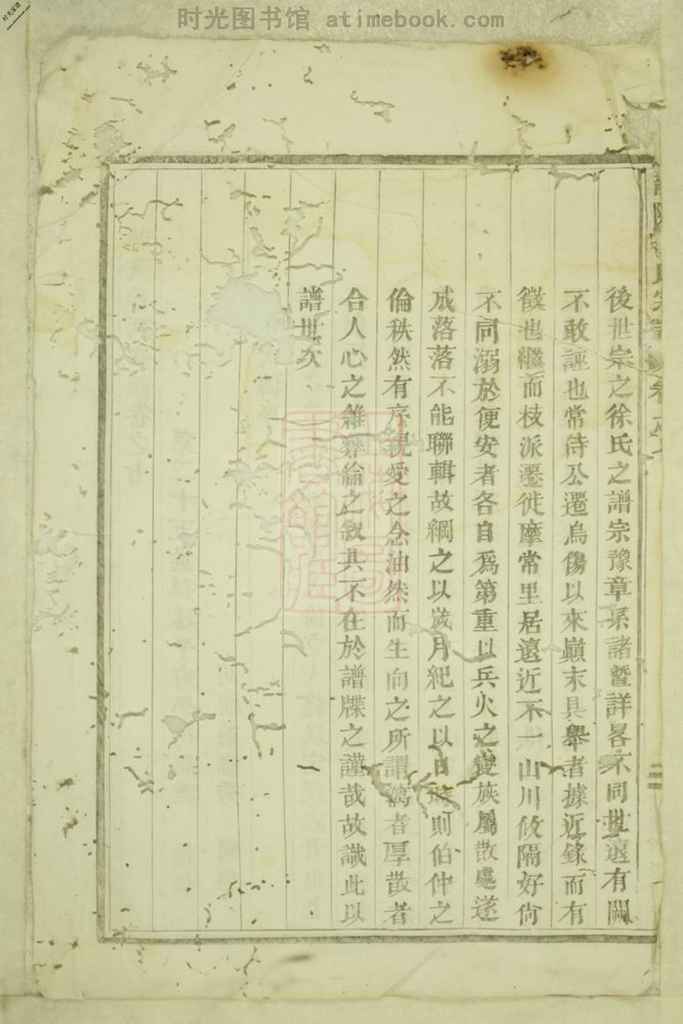 时光图书馆 atimebook.com
後世宗之徐氏之譜宗豫章系諸暨詳畧不同世遠有闕
不敢誣也常侍公遷烏傷以來巔末具舉者據近錄而有
徵也繼而枝派遷徙靡常里居遠近不一山川攸隔好尙
不同溺於便安者各自爲第重以兵火之變族屬散處遂
成落落不能聯輯故綱之以歲月紀之以日 則伯仲之
倫秩然有序親愛之念油然而生向之所謂 者厚散者
合人心之 倫之敘其不在於譜牒之謹哉故識此以
譜世次